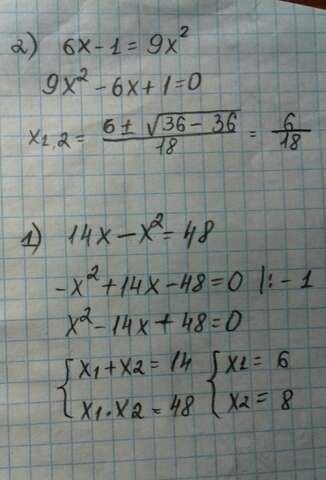 2) 6x - 1 = 9x²
9x² - 6x + 1 = 0
x₁,₂ = (6 ± √(36 - 36))/18 = 6/18
1) 14x - x² = 48
-x² + 14x - 48 = 0 |: -1
x² - 14x + 48 = 0
{ x₁ + x₂ = 14 { x₁ = 6
{ x₁ · x₂ = 48 { x₂ = 8